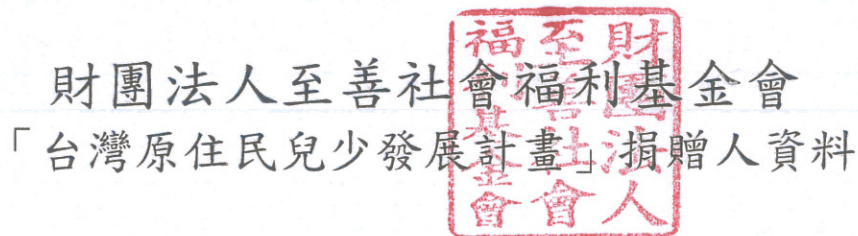 財團法人至善社會福利基金會
「台灣原住民兒少發展計畫」捐贈人資料
財團法人
至善社會
福利基金會